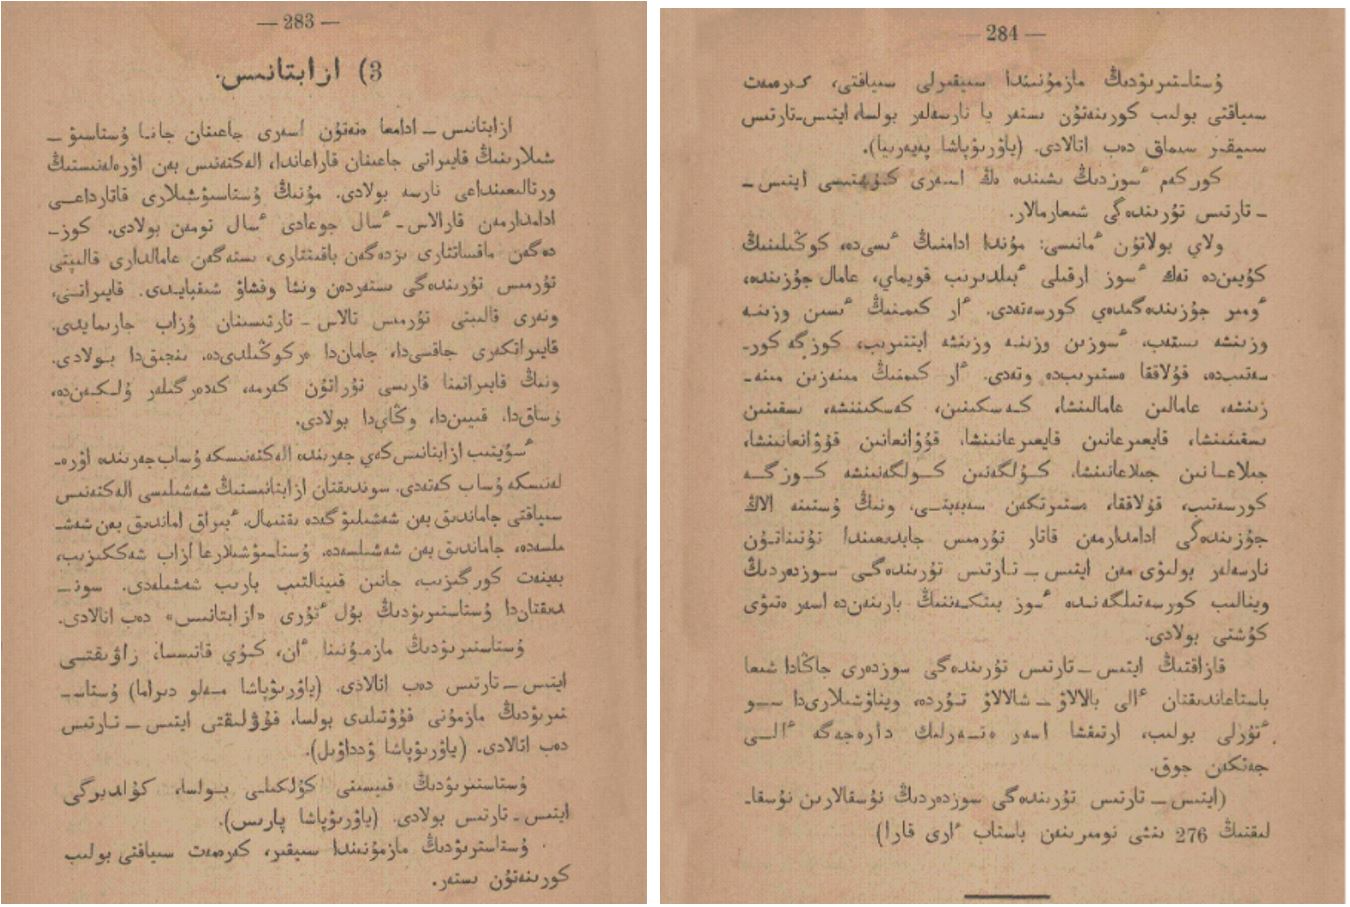 — 283 —
3) ازابتانىس.
ازابتانىس — ادامعا ەتەتۇن اسەرى جاعىنان جانا ۇستاسىۋ —
شىلارىنىڭ قايىراتى جاعىنان قاراعاندا، الەكتەنىس بەن اۋرەلەنىستىڭ
ورتالىعىنداعى نارسە بولادى. مۇنىڭ ۇستاسىۋشىلارى قاتارداعى
ادامدارمەن قارالاس - ٴسال جوعادى ٴسال تومەن بولادى. كوز-
دەگەن ماقساتتارى ىزدەگەن باقىتتارى، ىستەگەن عامالدارى قالىپتى
تۇرمىس تۇرىندەگى ىستەردەن ونشا وقشاۋ شىقپايدى. قايىراتى،
ونەرى قالىپتى تۇرمىس تالاس - تارتىسىنان ۇزاپ جارىمايدى.
قايىراتكەرى جاقسىدا، جاماندا ەركوڭىلدىدە، ىنجىقدا بولادى.
ونىڭ قايىراتىنا قارسى تۇراتۇن كەرمە، كەدەرگىلەر ۇلكەندە،
ۇساقدا، قىيىندا، وڭايدا بولادى.
ٴسۇيتىپ ازابتانىسكەي جەرىندە الەكتەنىسكە ۇساب جەرىندە اۋرە-
لەنىسكە ۇساب كەتەدى. سوندىقتان ازابتانىستىڭ شەشىلىسى الەكتەنىس
سىياقتى جاماندىق بەن شەشىلىۋگەدە ىقتىمال. ٴبىراق اماندىق بەن شەشى-
ىلسەدە، جاماندىق بەن شەشىلسەدە، ۇستاسىۋشىلارعا ازاب شەككىزىپ،
بەينەت كورگىزىب، جانىن قىينالتىپ بارىب شەشىلەدى. سون-
دىقتاندا ۇستاستىرىۋدىڭ بۇل ٴتۇرى «ازابتانىس» دەب اتالادى.
ۇستاستىرىۋدىڭ مازمۇنىنا ٴان، كۇي قاتىسسا، زاۋىقتى
ايتىس — تارتىس دەب اتالادى. (ياۋرىۋپاشا مەلو دىراما) ۇستاس-
تىرىۋدىڭ مازمۇنى قۇۋتىلدى بولسا، قۇۋلىقتى ايتىس — تارتىس
دەب اتالادى. (ياۋرىۋپاشا ۋوداۋىل).
ۇستاستىرىۋدىڭ قىيسىنى كۇلكىلى بولسا، كۇلدىرگى
ايتىس - تارتىس بولادى. (ياۋرىۋپاشا پارىس).
ۇستاستىرىۋدىڭ مازمۇنىندا سىيقىر، كەرەمەت سىياقتى بولىب
كورىنەتۇن ىستەر.
— 284 —
ۇستاستىرىۋدىڭ مازمۇنىندا سىيقىرلى سىياقتى، كەرەمەت
سىياقتى بولىب كورىنەتۇن ىستەر يا نارسەلەر بولسا، ايتىس-تارتىس
سىيقىر سىماق دەب اتالادى. (ياۋرىۋپاشا پەيەرىيا).
كوركەم ٴسوزدىڭ ىشىندە ەڭ اسەرى كۇشتىسى ايتىس -
- تارتىس تۇرىندەگى شىعارمالار.
ولاي بولاتۇن ٴمانىسى: مۇندا ادامنىڭ ٴىسىدە، كوڭىلىنىڭ
كۇيىندە تەك ٴسوز ارقىلى ٴبىلدىرىب قويماي، عامال جۇزىندە،
ٴومىر جۇزىندەگىدەي كورسەتەدى. ٴار كىمنىڭ ٴىسىن وزىنە
وزىنشە ىستەپ، ٴسوزىن وزىنە وزىنشە ايتتىرىب، كوزگە كور-
سەتىبدە، قۇلاققا ەستىرىبدە وتەدى. ٴار كىمنىڭ مىنەزىن مىنە-
زىنشە، عامالىن عامالىنشا، كەسكىنىن، كەسكىنىنشە، ىسقىنىن
ىسقىنىنشا، قايعىرعانىن قايعىرعانىنشا، قۇۋانعانىن قۇۋانعانىنشا،
جىلاعانىن جىلاعانىنشا، كۇلگەنىن كۇلگەنىنشە كوزگە
كورسەتىپ، قۇلاققا، ەستىرتكەن سەبەپتى، ونىڭ ۇستىنە الاڭ
جۇزىندەگى ادامدارمەن قاتار تۇرمىس جابدىعىندا تۇتىناتۇن
نارسەلەر بولىۋى مەن ايتىس — تارتىس تۇرىندەگى سوزدەردىڭ
وينالىب كورسەتىلگەندە ٴسوز بىتكەننىڭ بارىنەندە اسەر ەتىۋى
كۇشتى بولادى.
قازاقتىڭ ايتىس — تارتىس تۇرىندەگى سوزدەرى جاڭادا شىعا
باستاعاندىقتان ٴالى بالالاۋ — شالالاۋ تۇردە، ويناۋشىلارىدا سو
ٴتۇرلى بولىب، ارتىقشا اسەر ەتەرلىك دارەجەگە ٴالى
جەتكەن جوق.
(ايتىس — تارتىس تۇرىندەگى سوزدەردىڭ نۇسقالارىن نۇسقا-
لىقتىڭ 276 ىنشى نومىرىنەن باستاب ٴارى قارا)